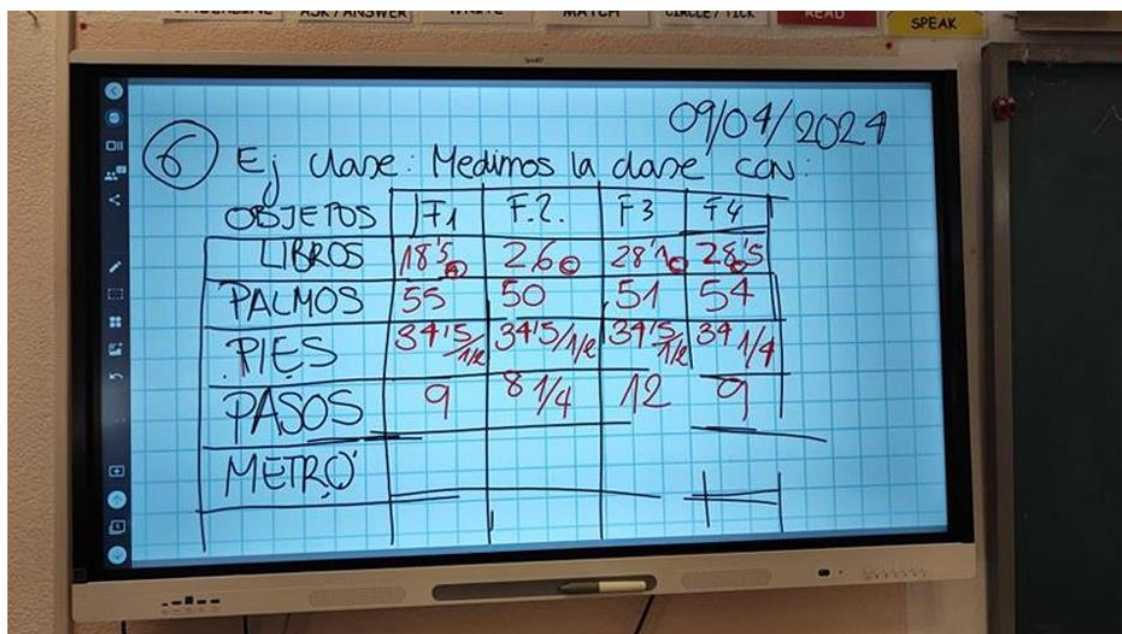 UNDERLINE ASK / ANSWER WRITE MATCH CIRCLE / TICK READ SPEAK
09/04/2024
6 Ej clase: Medimos la clase con:
OBJETOS F1 F.2. F3 F4
LIBROS 18'5 26 28'1 28'5
PALMOS 55 50 51 54
PIES 34'5/1/2 34'5/1/2 34'5/1/2 34 1/4
PASOS 9 8 1/4 12 9
METRO